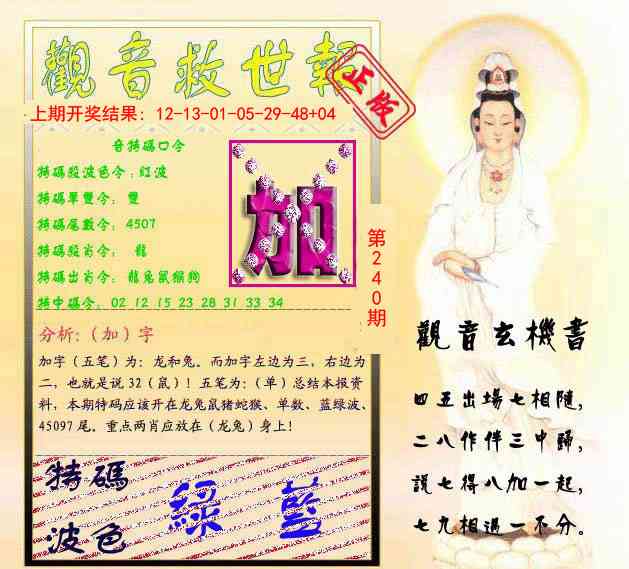 觀音救世報
正版
上期开奖结果：12-13-01-05-29-48+04
音特碼口令
特碼段波色令：红波
特碼單雙令： 雙
特碼尾數令： 4507
特碼段肖令： 龍
特碼出肖令： 龍兔鼠猴狗
特中碼令： 02 12 15 23 28 31 33 34
加
第240期
分析:（加）字
加字（五笔）为：龙和兔。而加字左边为三，右边为
二，也就是说 32（鼠）！五笔为:（单）总结本报资
料，本期特码应该开在龙兔鼠猪蛇猴、单数、蓝绿波、
45097 尾。重点两肖应放在（龙兔）身上！
特碼
波色
綠 藍
觀音玄機書
四五出場七相隨，
二八作伴三中歸，
說七得八加一起，
七九相遇一不分。